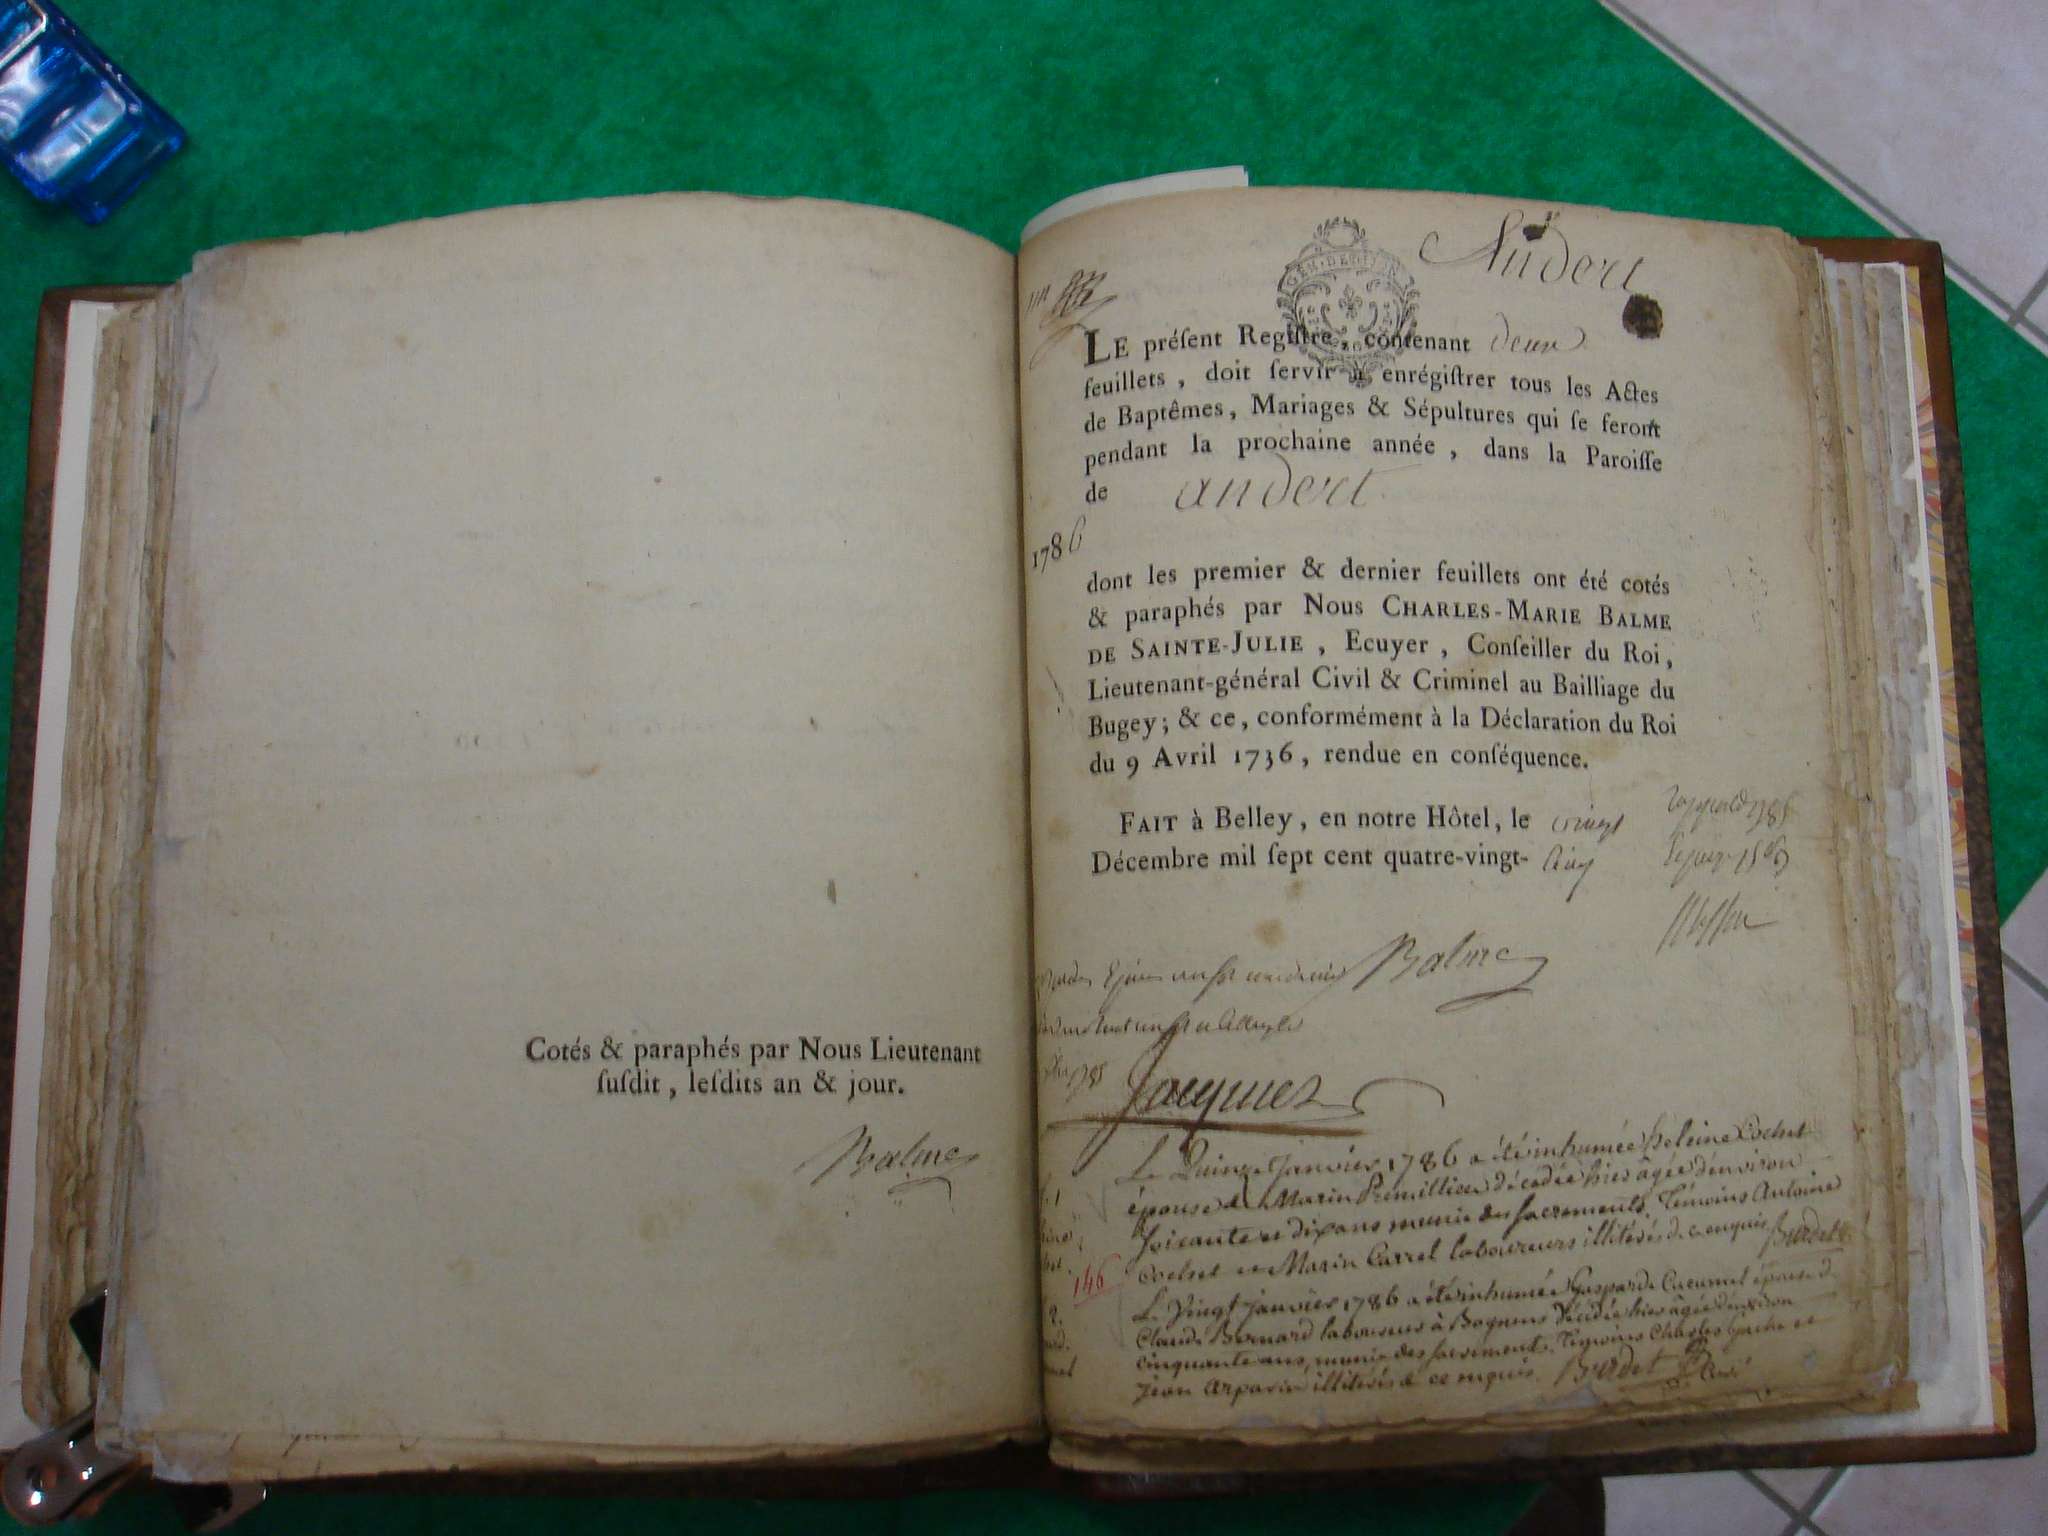 Cotés & paraphés par Nous Lieutenant
ſuſdit, leſdits an & jour.
Balme
GEN. DE DIJON
Andert
LE préſent Regiſtre, contenant deux
feuillets, doit ſervir à enrégiſtrer tous les Actes
de Baptêmes, Mariages & Sépultures qui ſe feront
pendant la prochaine année, dans la Paroiſſe
de andert
1786
dont les premier & dernier feuillets ont été cotés
& paraphés par Nous CHARLES-MARIE BALME
DE SAINTE-JULIE, Ecuyer, Conſeiller du Roi,
Lieutenant-général Civil & Criminel au Bailliage du
Bugey; & ce, conformément à la Déclaration du Roi
du 9 Avril 1736, rendue en conſéquence.
FAIT à Belley, en notre Hôtel, le vingt
Décembre mil ſept cent quatre-vingt- cinq
Balme
Jacquet
Le Quinze Janvier 1786 a été inhumée heleine Cochet
épouse de Marin Premillieu décédée hier âgée d'environ
soixante et dix ans munie des sacrements. Témoins Antoine
Cochet et Marin Carrel laboureurs illiterés de ce enquis Burdet
146
Le vingt janvier 1786 a été inhumée Gasparde Cucumel épouse de
Claude Bernard laboureur à Bognens décédée hier âgée d'environ
cinquante ans, munie des sacrements. Témoins Charles et
jean illiterés de ce enquis. Burdet Curé